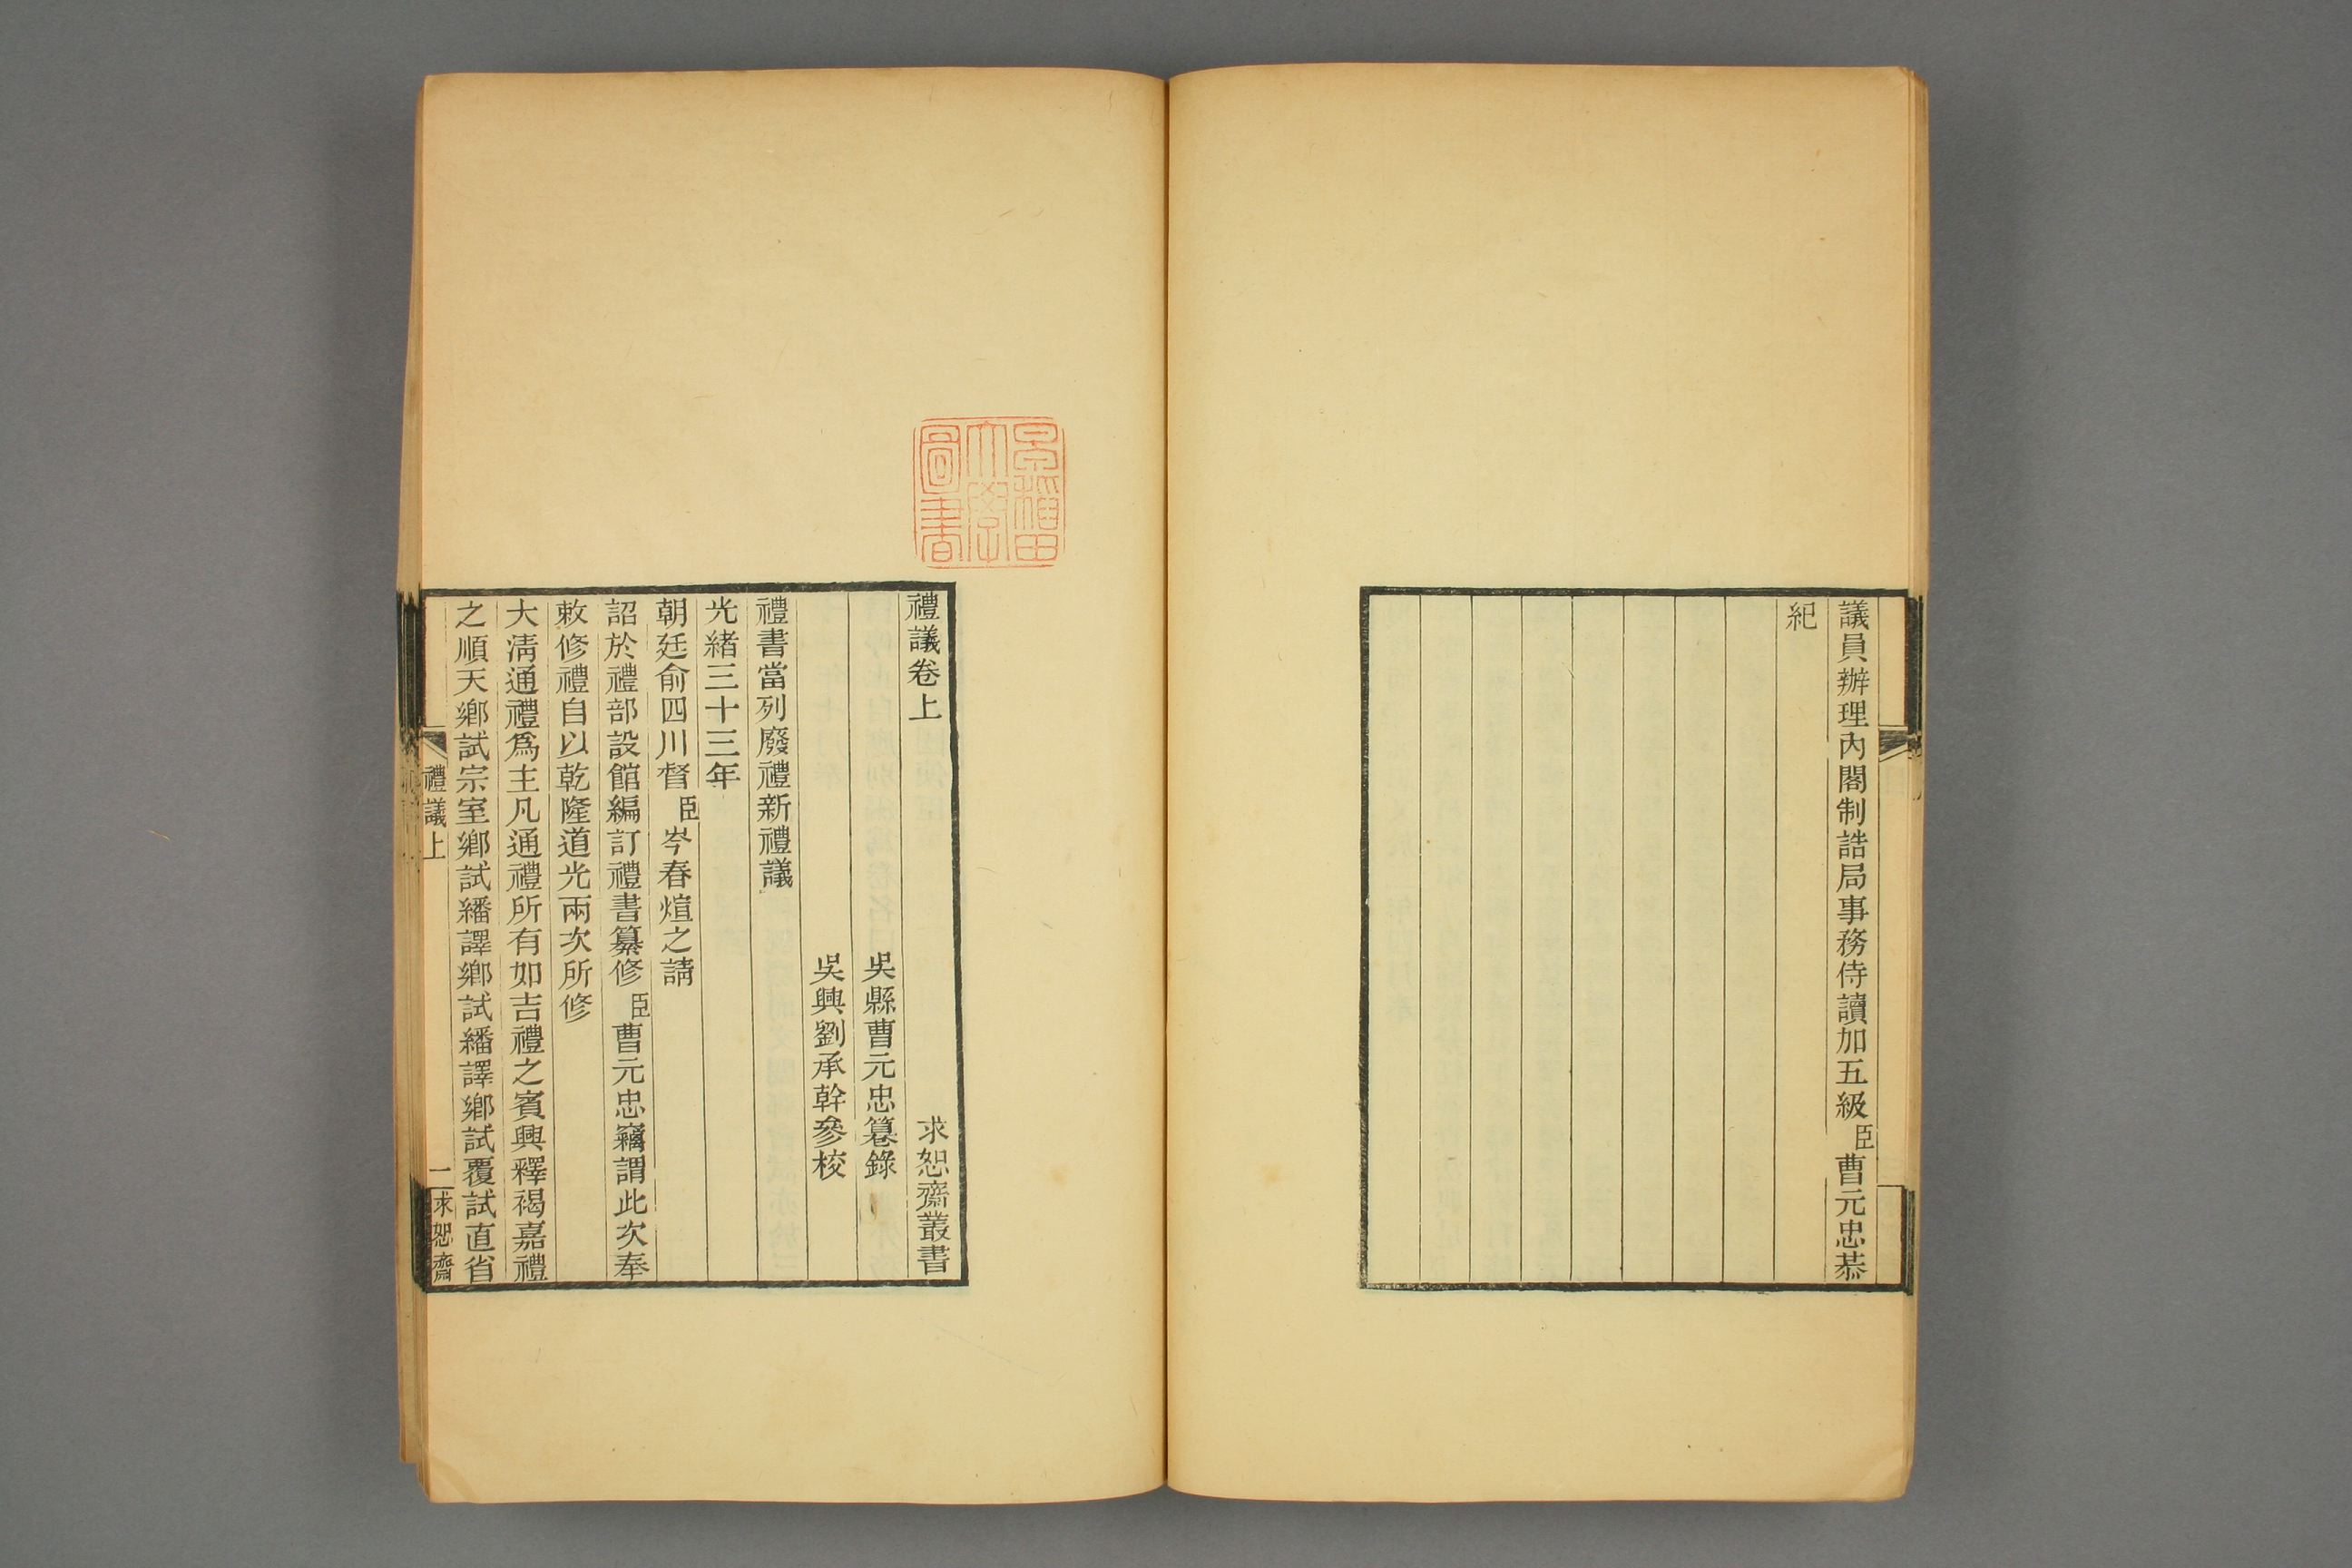 議員辦理內閣制誥局事務侍讀加五級臣曹元忠恭
紀
早稻田
大學
圖書
禮議卷上 求恕齋叢書
吳縣曹元忠篹錄
吳興劉承幹參校
禮書當列廢禮新禮議
光緒三十三年
朝廷俞四川督臣岑春煊之請
詔於禮部設館編訂禮書纂修臣曹元忠竊謂此次奉
敕修禮自以乾隆道光兩次所修
大淸通禮爲主凡通禮所有如吉禮之賓興釋褐嘉禮
之順天鄉試宗室鄉試繙譯鄉試繙譯鄉試覆試直省
禮議上 一 求恕齋